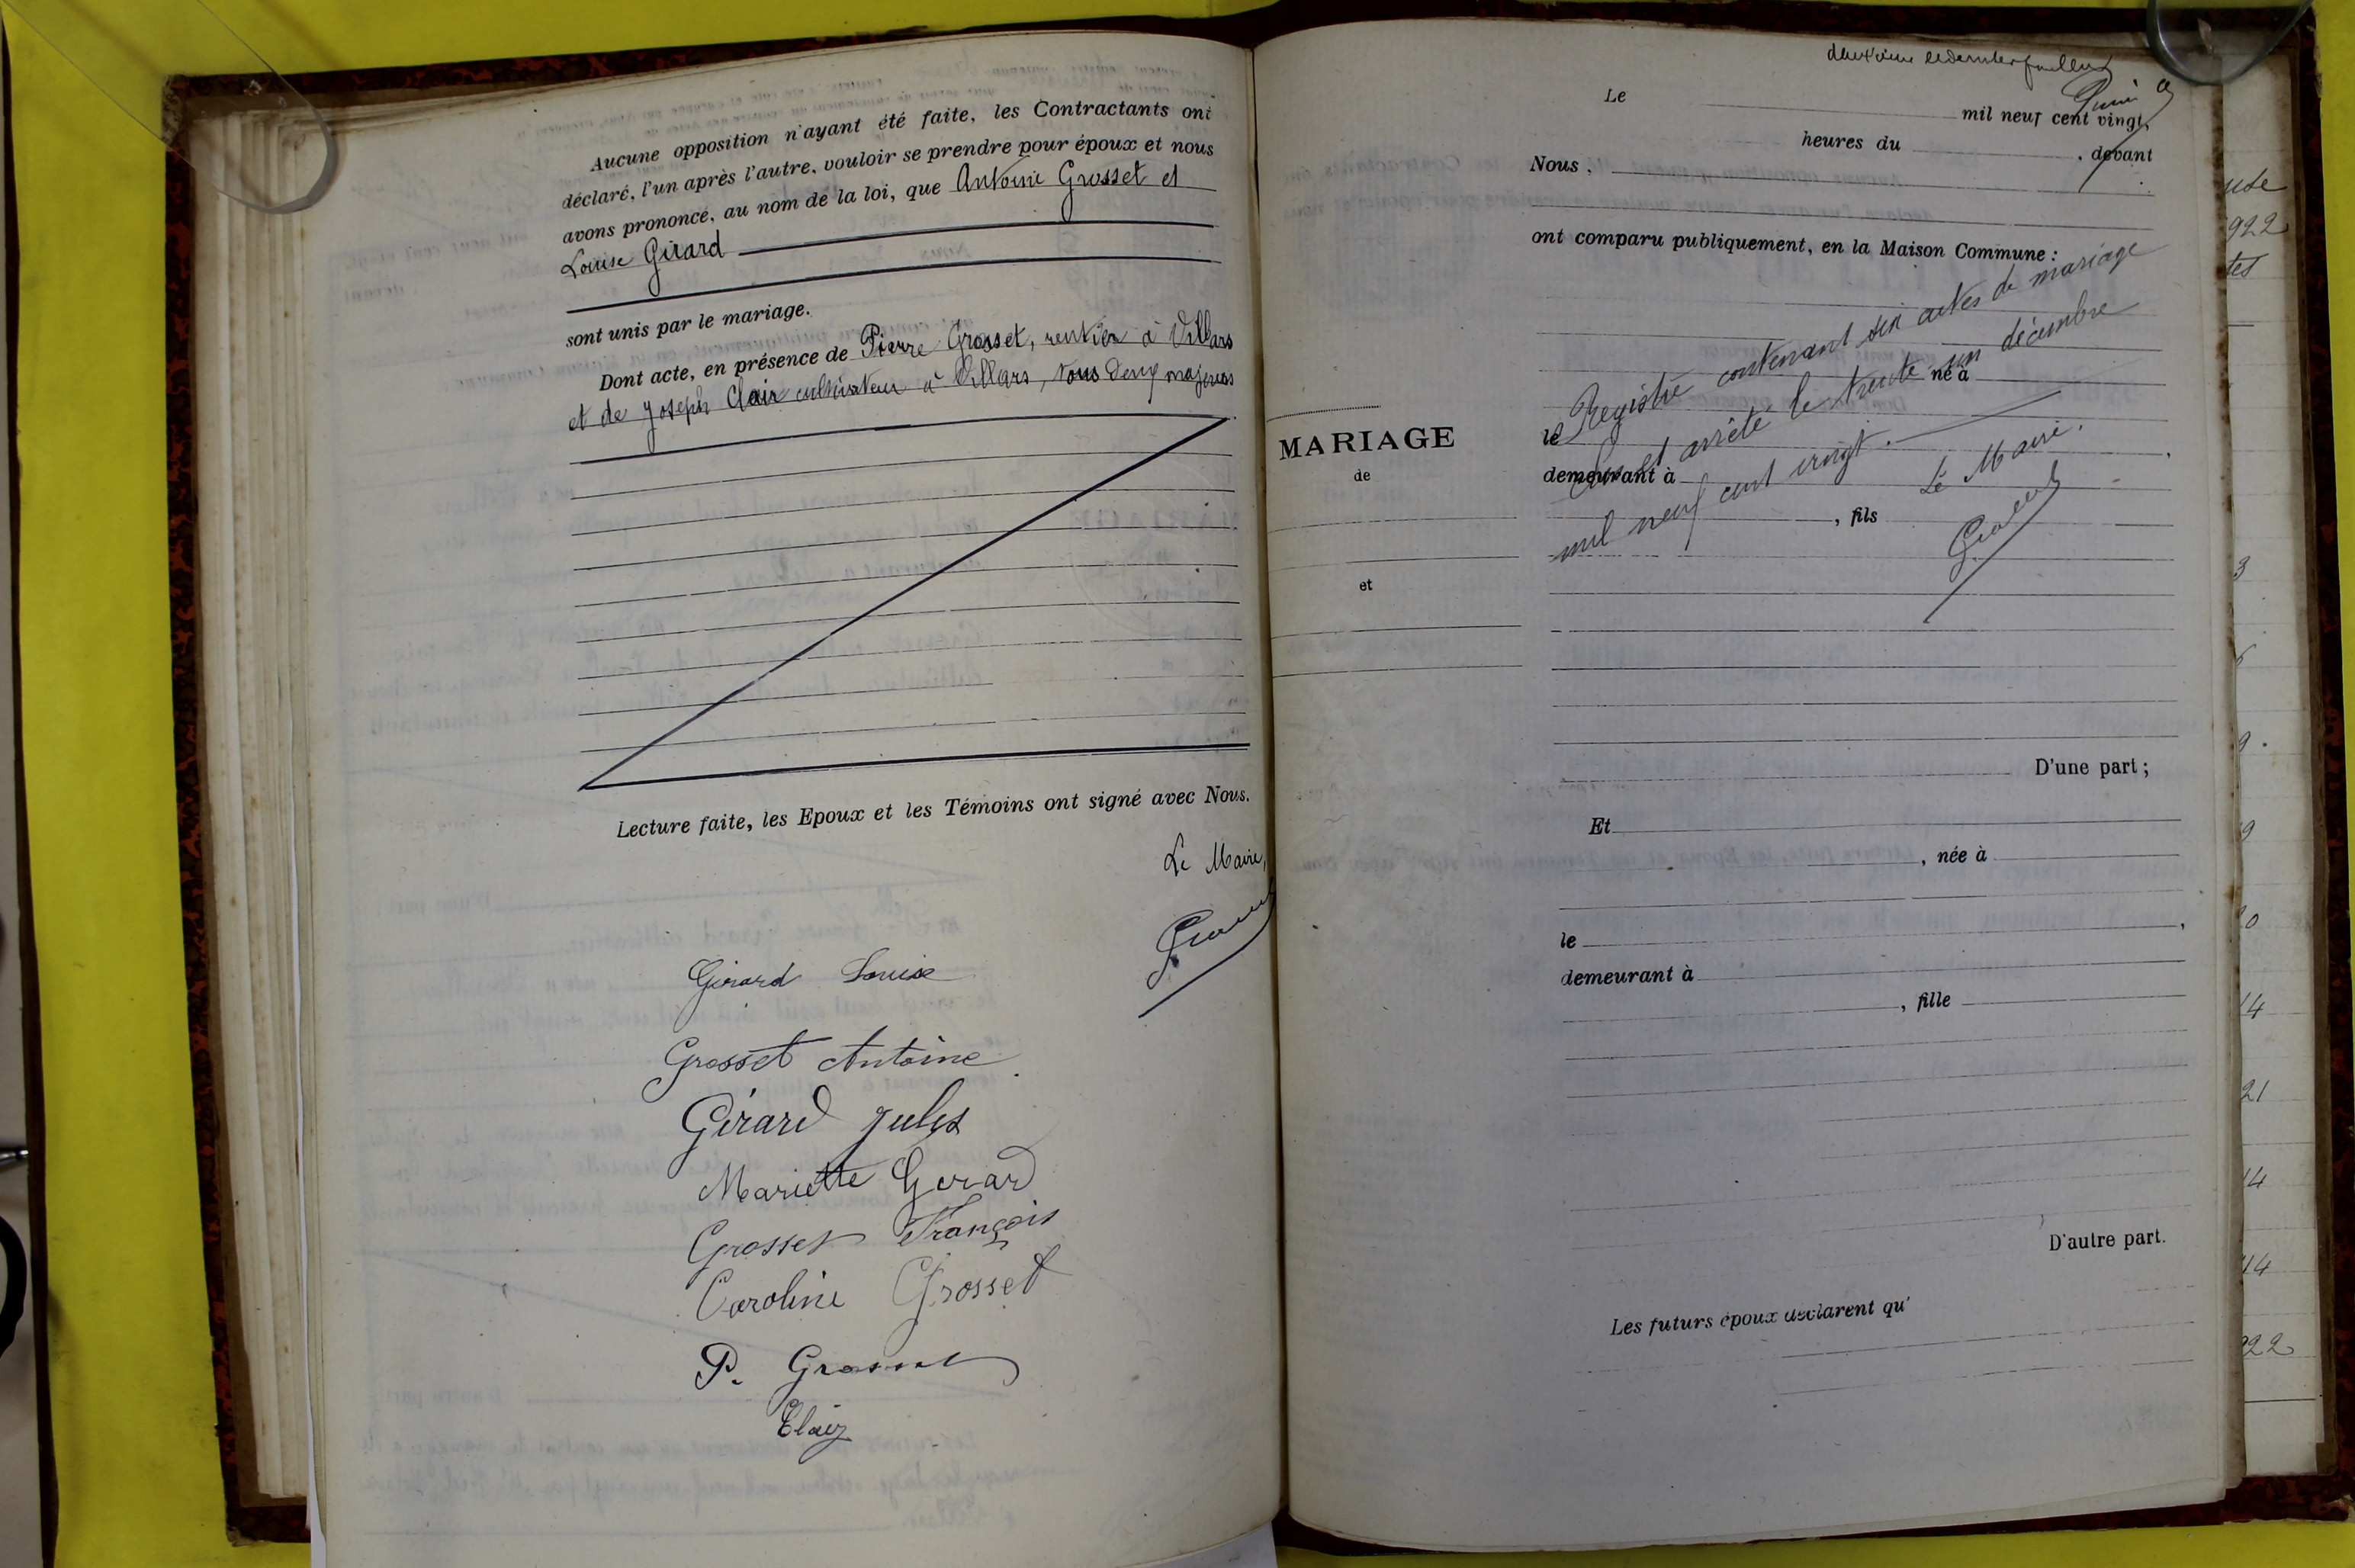 Aucune opposition n'ayant été faite, les Contractants ont
déclaré, l'un après l'autre, vouloir se prendre pour époux et nous
avons prononcé, au nom de la loi, que Antoine Grosset et
Louise Girard
sont unis par le mariage.
Dont acte, en présence de Pierre Grosset, rentier à Villars
et de Joseph Clair cultivateur à Villars, tous deux majeurs
Lecture faite, les Epoux et les Témoins ont signé avec Nous.
Le Maire,
Girard Louise
Grosset Antoine
Girard Jules
Mariette Gerard
Grosset François
Caroline Grosset
P. Grosset
Clair
deuxième et dernier feuillet
Le mil neuf cent vingt,
heures du , devant
Nous,
ont comparu publiquement, en la Maison Commune :
Registre contenant six actes de mariage
né à
le
Clos et arrêté le trente un décembre
demeurant à
mil neuf cent vingt.
Le Maire.
, fils
MARIAGE
de
et
D'une part ;
Et
, née à
le ,
demeurant à
, fille
D'autre part.
Les futurs époux déclarent qu'
922
tes
3
9.
9
14
21
14
14
22